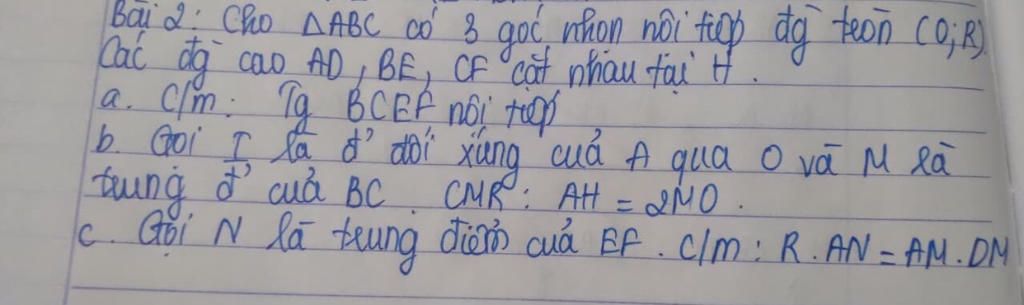 Bài 2: Cho △ABC có 3 góc nhọn nội tiếp đg tròn (O;R).
Các đg cao AD, BE, CF cắt nhau tại H.
a. C/m: Tg BCEF nội tiếp
b. Gọi I là đ' đối xứng của A qua O và M là
trung đ' của BC. CMR: AH = 2MO.
c. Gọi N là trung điểm của EF. C/m: R.AN = AM.DM